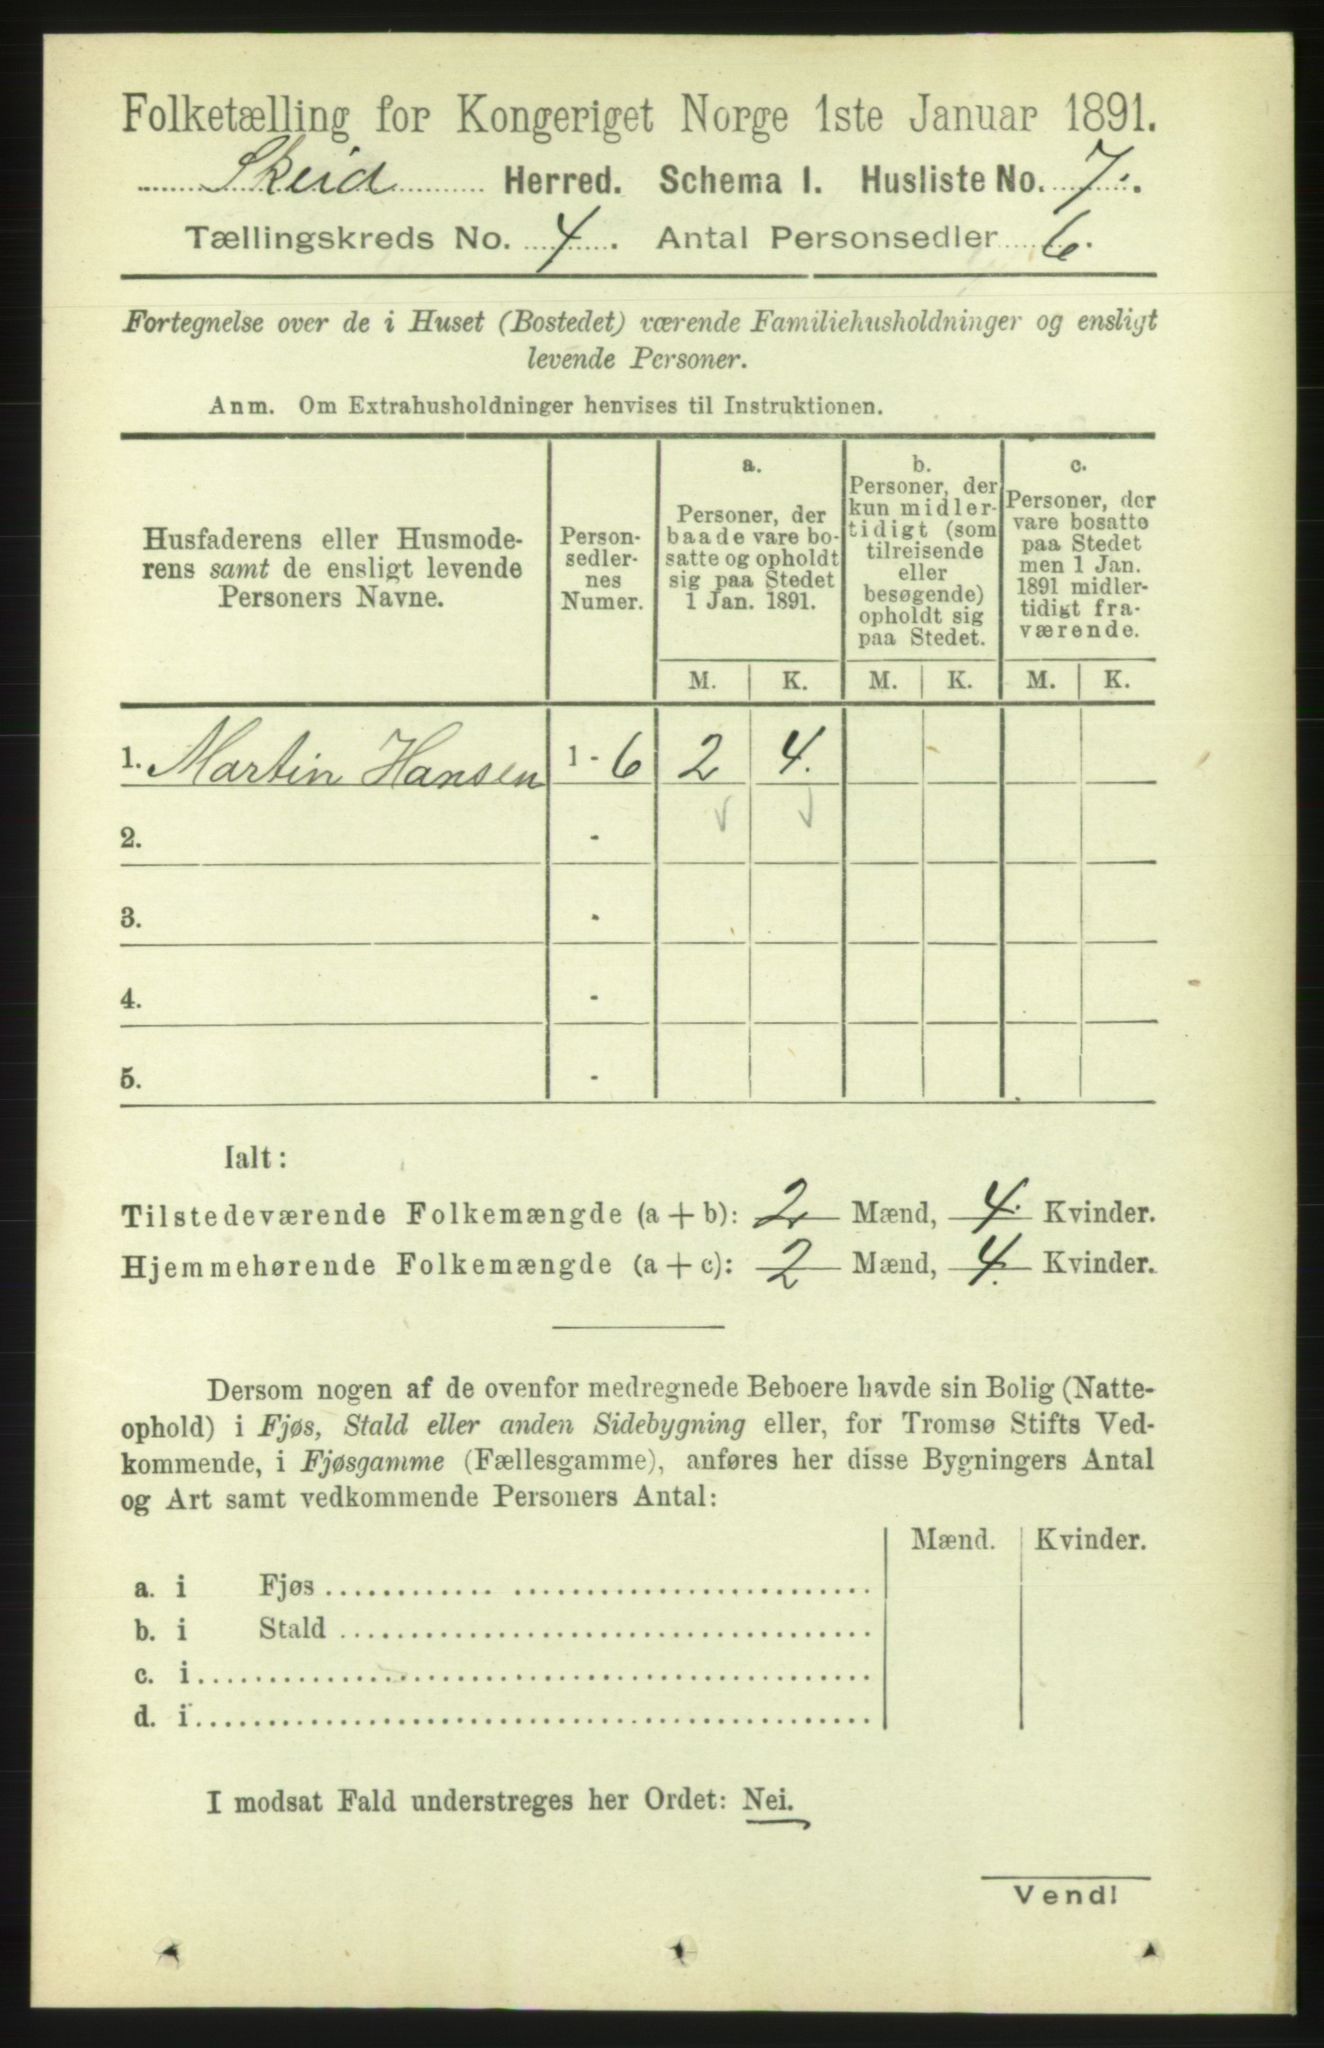 Folketælling for Kongeriget Norge 1ste Januar 1891.
Skeid Herred. Schema I. Husliste No. 7.
Tællingskreds No. 4. Antal Personsedler 6.
Fortegnelse over de i Huset (Bostedet) værende Familiehusholdninger og ensligt
levende Personer.
Anm. Om Extrahusholdninger henvises til Instruktionen.
Husfaderens eller Husmode-
rens samt de ensligt levende
Personers Navne.
Person-
sedler-
nes
Numer.
a.
Personer, der
baade vare bo-
satte og opholdt
sig paa Stedet
1 Jan. 1891.
b.
Personer, der
kun midler-
tidigt (som
tilreisende
eller
besøgende)
opholdt sig
paa Stedet.
c.
Personer, der
vare bosatte
paa Stedet
men 1 Jan.
1891 midler-
tidigt fra-
værende.
M. K. M. K. M. K.
1. Martin Hansen 1 - 6 2 4.
2. -
3. -
4. -
5. -
Ialt:
Tilstedeværende Folkemængde (a + b): 2 Mænd, 4. Kvinder.
Hjemmehørende Folkemængde (a + c): 2 Mænd, 4. Kvinder.
Dersom nogen af de ovenfor medregnede Beboere havde sin Bolig (Natte-
ophold) i Fjøs, Stald eller anden Sidebygning eller, for Tromsø Stifts Ved-
kommende, i Fjøsgamme (Fællesgamme), anføres her disse Bygningers Antal
og Art samt vedkommende Personers Antal:
Mænd. Kvinder.
a. i Fjøs
b. i Stald
c. i
d. i
I modsat Fald understreges her Ordet: Nei.
Vend!